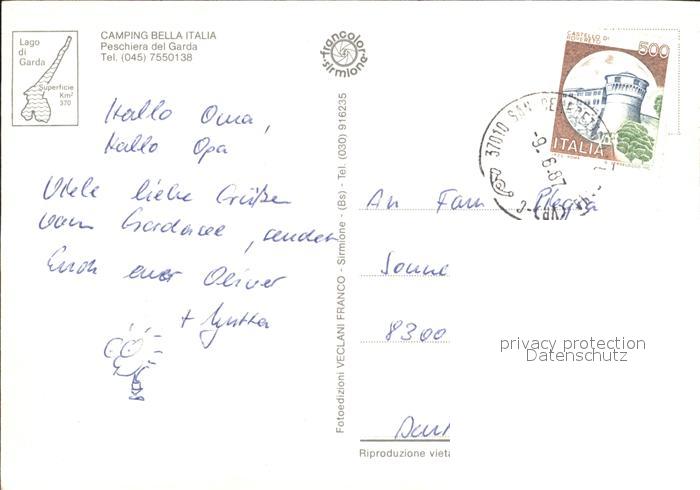 Lago
di
Garda
Superficie
Km²
370
CAMPING BELLA ITALIA
Peschiera del Garda
Tel. (045) 7550138
francolor
sirmione
CASTELLO DI
ROVERETO
500
ITALIA
37010 SAN BENEDETTO
-9.-6.87
(VR)
Hallo Oma,
Hallo Opa
Viele liebe Grüßen
vom Gardasee, senden
Euch euer Oliver
+ Jutta
Fotoedizioni VECLANI FRANCO - Sirmione - (Bs) - Tel. (030) 916235
An Fam
Sonne
8300
privacy protection
Datenschutz
Riproduzione vieta